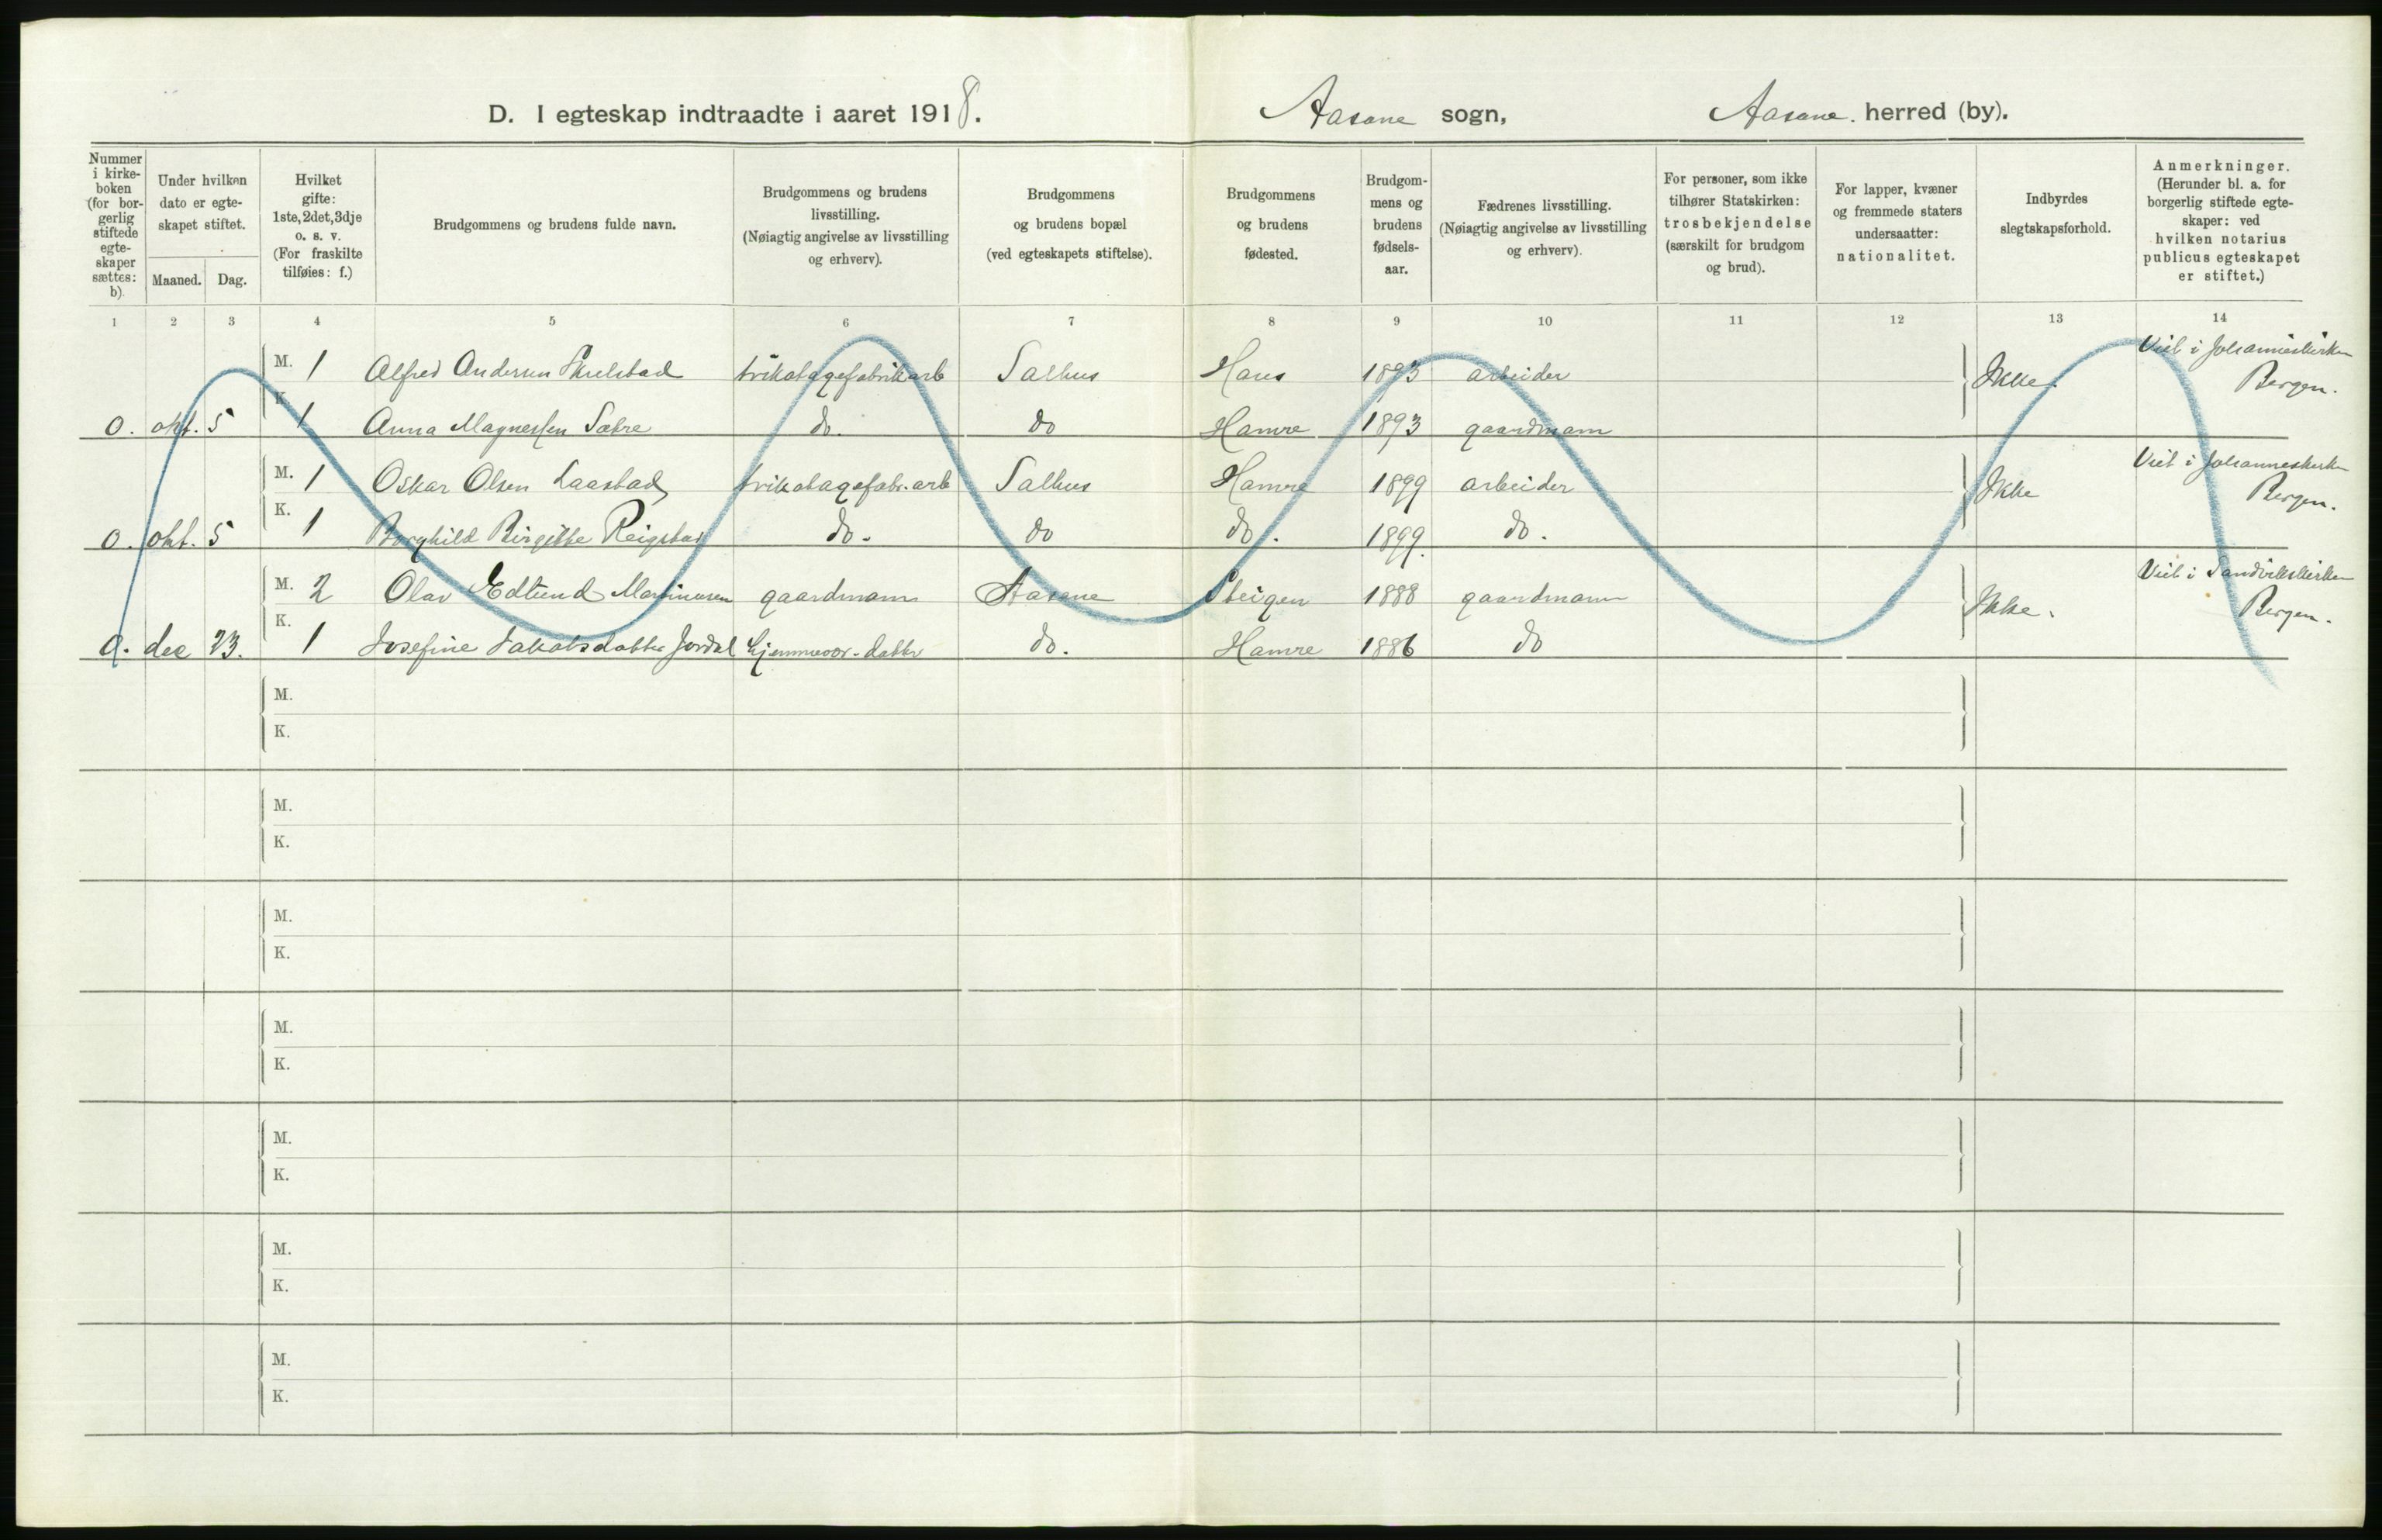 D. I egteskap indtraadte i aaret 1918. Aasane sogn, Aasane. herred (by).
Nummer i kirke-boken (for bor-gerlig stiftede egte-skaper sættes: b).
Under hvilken dato er egte-skapet stiftet.
Maaned. Dag.
Hvilket gifte: 1ste, 2det, 3dje o. s. v. (For fraskilte tilføies: f.)
Brudgommens og brudens fulde navn.
Brudgommens og brudens livsstilling. (Nøiagtig angivelse av livsstilling og erhverv).
Brudgommens og brudens bopæl (ved egteskapets stiftelse).
Brudgommens og brudens fødested.
Brudgom-mens og brudens fødsels-aar.
Fædrenes livsstilling. (Nøiagtig angivelse av livsstilling og erhverv).
For personer, som ikke tilhører Statskirken: trosbekjendelse (særskilt for brudgom og brud).
For lapper, kvæner og fremmede staters undersaatter: nationalitet.
Indbyrdes slegtskapsforhold.
Anmerkninger. (Herunder bl. a. for borgerlig stiftede egte-skaper: ved hvilken notarius publicus egteskapet er stiftet.)
1 2 3 4 5 6 7 8 9 10 11 12 13 14
M. 1 Alfred Andersen trikotagefabrikarb Salhus Haus 1893 arbeider Ikke. Viet i Johanneskirken Bergen.
0. okt. 5 K. 1 Anna Magnessen Sætre do. do Hamre 1893 gaardmann
M. 1 Oskar Olsen Laastad trikotagefabr.arb Salhus Hamre 1899 arbeider Ikke Viet i Johanneskirken Bergen.
0. okt. 5 K. 1 Borghild Birgitte Reigstad do. do do. 1899. do.
M. 2 Olav Edlund Martinusen gaardmann Aasane Steigen 1888 gaardmann Ikke. Viet i Sandvikskirken Bergen.
0. dec 23. K. 1 Josefine Jakobsdatter Jordal hjemmevær. datter do. Hamre 1886 do
M.
K.
M.
K.
M.
K.
M.
K.
M.
K.
M.
K.
M.
K.